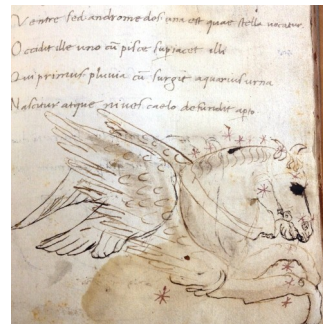 Ventre sed andromedes una est quae stella vocatur
Occidit ille uno cū pisce supiacet illi
Qui primus pluvia cū surgit aquarius urna
Nascitur atque nives caelo defundit apto